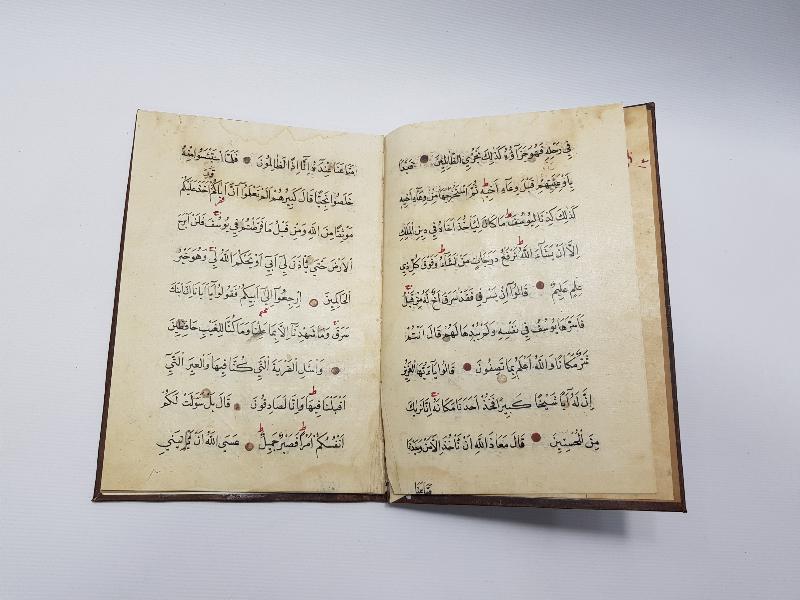 فِي رَحْلِهِ فَهُوَ جَزَاؤُهُ كَذَلِكَ نَجْزِي الظَّالِمِينَ فَبَدَأَ
بِأَوْعِيَتِهِمْ قَبْلَ وِعَاءِ أَخِيهِ ثُمَّ اسْتَخْرَجَهَا مِنْ وِعَاءِ أَخِيهِ
كَذَلِكَ كِدْنَا لِيُوسُفَ مَا كَانَ لِيَأْخُذَ أَخَاهُ فِي دِينِ الْمَلِكِ
إِلَّا أَنْ يَشَاءَ اللَّهُ نَرْفَعُ دَرَجَاتٍ مَنْ نَشَاءُ وَفَوْقَ كُلِّ ذِي
عِلْمٍ عَلِيمٌ قَالُوا إِنْ يَسْرِقْ فَقَدْ سَرَقَ أَخٌ لَهُ مِنْ قَبْلُ
فَأَسَرَّهَا يُوسُفُ فِي نَفْسِهِ وَلَمْ يُبْدِهَا لَهُمْ قَالَ أَنْتُمْ
شَرٌّ مَكَانًا وَاللَّهُ أَعْلَمُ بِمَا تَصِفُونَ قَالُوا يَا أَيُّهَا الْعَزِيزُ
إِنَّ لَهُ أَبًا شَيْخًا كَبِيرًا فَخُذْ أَحَدَنَا مَكَانَهُ إِنَّا نَرَاكَ
مِنَ الْمُحْسِنِينَ قَالَ مَعَاذَ اللَّهِ أَنْ نَأْخُذَ إِلَّا مَنْ وَجَدْنَا
مَتَاعَنَا
مَتَاعَنَا عِنْدَهُ إِنَّا إِذًا لَظَالِمُونَ فَلَمَّا اسْتَيْأَسُوا مِنْهُ
خَلَصُوا نَجِيًّا قَالَ كَبِيرُهُمْ أَلَمْ تَعْلَمُوا أَنَّ أَبَاكُمْ قَدْ أَخَذَ عَلَيْكُمْ
مَوْثِقًا مِنَ اللَّهِ وَمِنْ قَبْلُ مَا فَرَّطْتُمْ فِي يُوسُفَ فَلَنْ أَبْرَحَ
الْأَرْضَ حَتَّى يَأْذَنَ لِي أَبِي أَوْ يَحْكُمَ اللَّهُ لِي وَهُوَ خَيْرُ
الْحَاكِمِينَ ارْجِعُوا إِلَى أَبِيكُمْ فَقُولُوا يَا أَبَانَا إِنَّ ابْنَكَ
سَرَقَ وَمَا شَهِدْنَا إِلَّا بِمَا عَلِمْنَا وَمَا كُنَّا لِلْغَيْبِ حَافِظِينَ
وَاسْأَلِ الْقَرْيَةَ الَّتِي كُنَّا فِيهَا وَالْعِيرَ الَّتِي
أَقْبَلْنَا فِيهَا وَإِنَّا لَصَادِقُونَ قَالَ بَلْ سَوَّلَتْ لَكُمْ
أَنْفُسُكُمْ أَمْرًا فَصَبْرٌ جَمِيلٌ عَسَى اللَّهُ أَنْ يَأْتِيَنِي